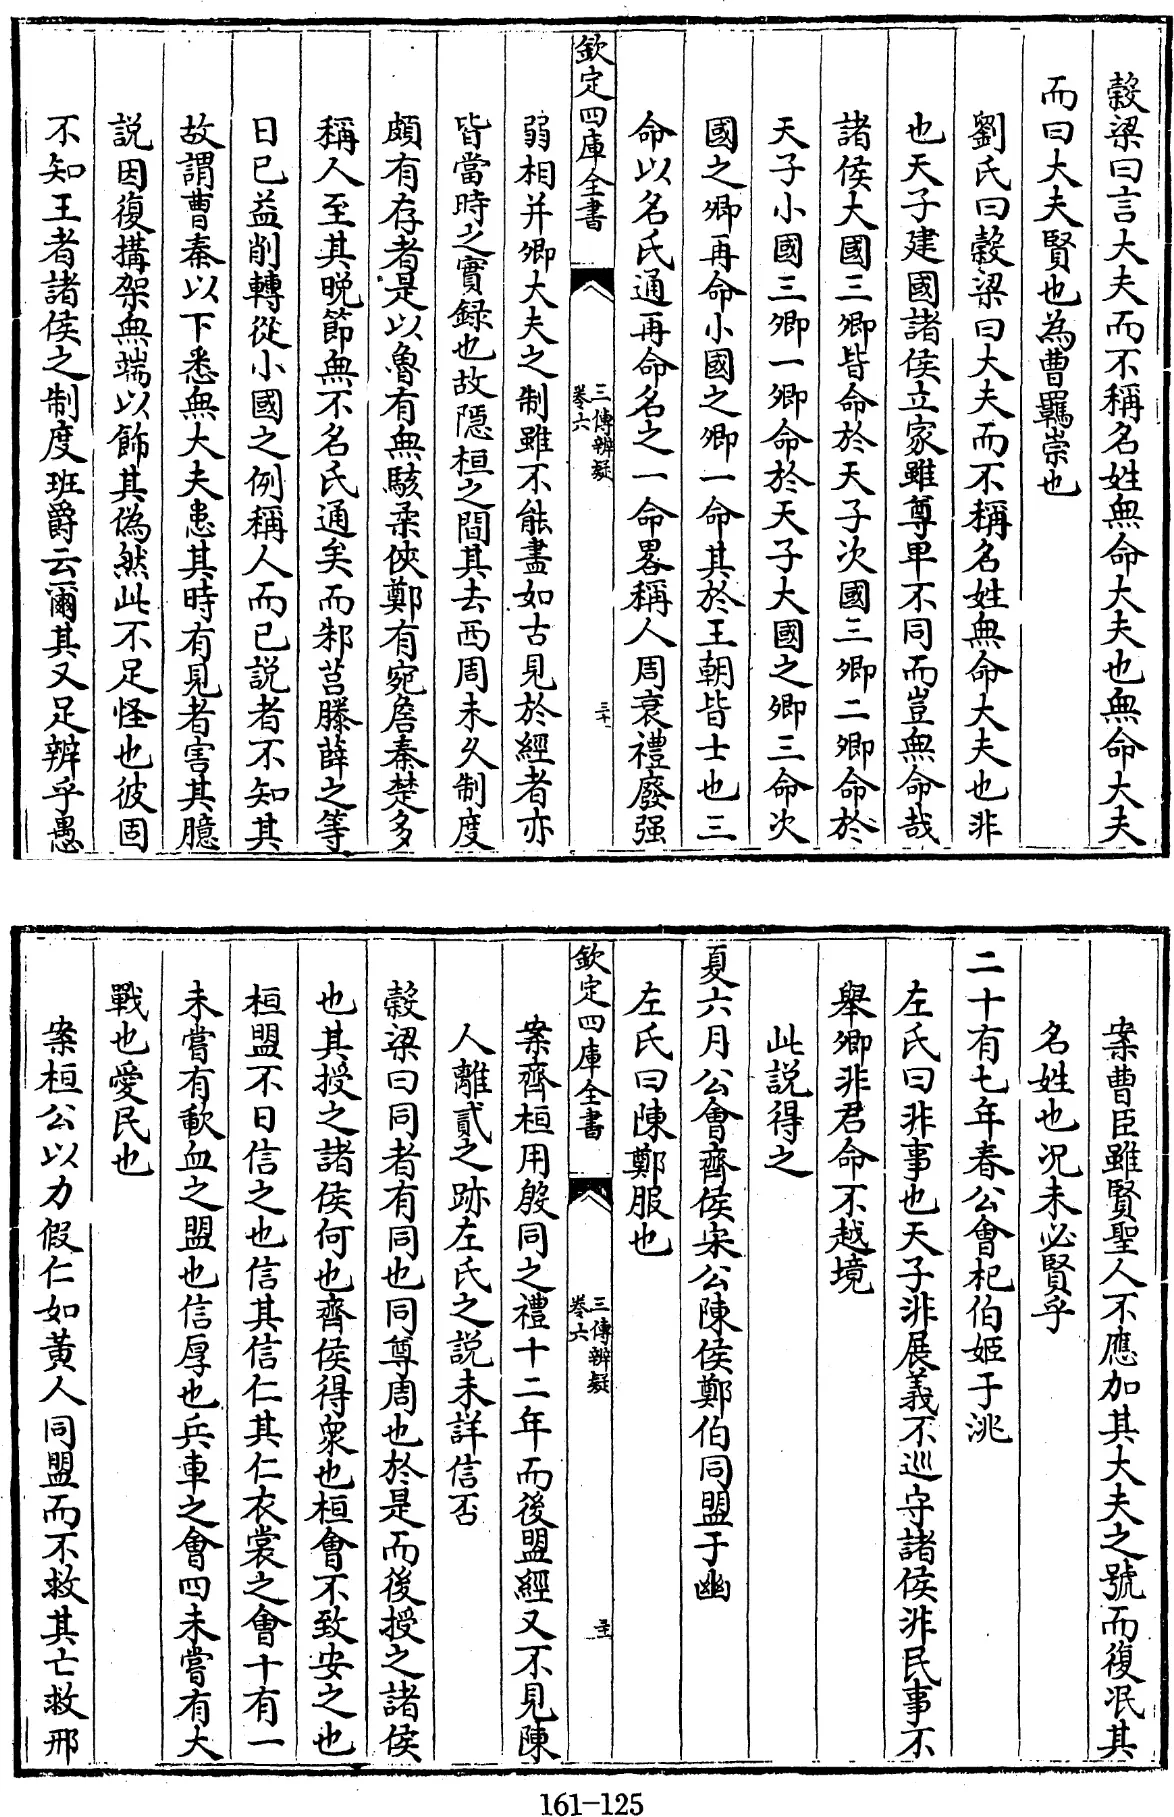 穀梁曰言大夫而不稱名姓無命大夫也無命大夫
而曰大夫賢也為曹羈崇也
劉氏曰穀梁曰大夫而不稱名姓無命大夫也非
也天子建國諸侯立家雖尊卑不同而豈無命哉
諸侯大國三卿皆命於天子次國三卿二卿命於
天子小國三卿一卿命於天子大國之卿三命次
國之卿再命小國之卿一命其於王朝皆士也三
命以名氏通再命名之一命畧稱人周衰禮廢强
欽定四庫全書
三傳辨疑
卷六
三十
弱相并卿大夫之制雖不能盡如古見於經者亦
皆當時之實録也故隠桓之間其去西周未久制度
頗有存者是以魯有無駭柔俠鄭有宛詹秦楚多
稱人至其晚節無不名氏通矣而邾莒滕薛之等
日已益削轉從小國之例稱人而已説者不知其
故謂曹秦以下悉無大夫患其時有見者害其臆
説因復搆架無端以飾其偽然此不足怪也彼固
不知王者諸侯之制度班爵云爾其又足辨乎愚
案曹臣雖賢聖人不應加其大夫之號而復冺其
名姓也况未必賢乎
二十有七年春公會杞伯姬于洮
左氏曰非事也天子非展義不巡守諸侯非民事不
舉卿非君命不越境
此説得之
夏六月公會齊侯宋公陳侯鄭伯同盟于幽
左氏曰陳鄭服也
欽定四庫全書
三傳辨疑
卷六
案齊桓用殷同之禮十二年而後盟經又不見陳
人離貳之跡左氏之説未詳信否
穀梁曰同者有同也同尊周也於是而後授之諸侯
也其授之諸侯何也齊侯得衆也桓會不致安之也
桓盟不日信之也信其信仁其仁衣裳之會十有一
未嘗有歃血之盟也信厚也兵車之會四未嘗有大
戰也愛民也
案桓公以力假仁如黄人同盟而不救其亡救邢
161-125